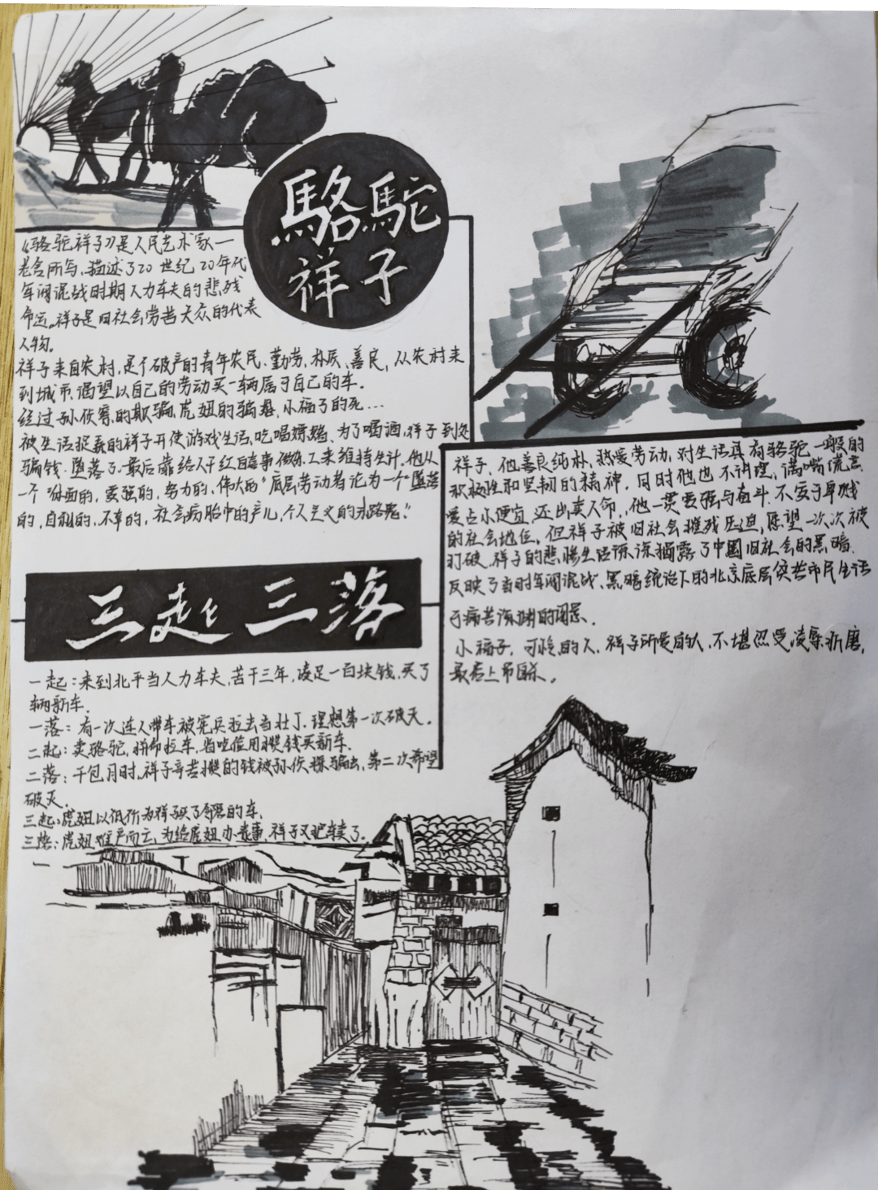 駱駝
祥子
《骆驼祥子》是人民艺术家一
老舍所写,描述了20世纪20年代
军阀混战时期人力车夫的悲残
命运。祥子是旧社会劳苦大众的代表
人物。
祥子来自农村,是个破产的青年农民,勤劳、朴质、善良,从农村来
到城市,渴望以自己的劳动买一辆属于自己的车。
经过孙侦察的欺骗,虎妞的骗婚,小福子的死…
被生活捉弄的祥子开使游戏生活,吃喝嫖赌。为了喝酒,祥子到处
骗钱,堕落了.最后靠给人干红白喜事做杂工来维持生计。他从
一个"体面的,要强的,努力的,伟大的"底层劳动者沦为一个堕落
的,自私的,不幸的,社会病胎中的产儿,个人主义的末路鬼!"
祥子,他善良纯朴,热爱劳动,对生活具有骆驼一般的
积极性和坚韧的精神,同时他也不讲理,满嘴谎言
爱占小便宜,还出卖人命,他一贯要强与奋斗.不安于卑贱
的社会地位,但祥子被旧社会摧残压迫,愿望一次次被
打破,祥子的悲惨生活深深揭露了中国旧社会的黑暗,
反映了当时军阀混战、黑暗统治下的北京底层贫苦市民生活
于痛苦深渊的图景.
小福子,可怜的人,祥子所爱的人,不堪忍受凌辱折磨,
最后上吊自杀.
三起三落
一起:来到北平当人力车夫,苦干三年,凑足一百块钱,买了
辆新车.
一落:有一次连人带车被宪兵拉去当壮丁.理想第一次破灭.
二起:卖骆驼,拼命拉车,省吃俭用攒钱买新车.
二落:干包月时,祥子辛苦攒的钱被孙侦探骗去,第二次希望
破灭.
三起:虎妞以低价为祥子买了邻居的车.
三落:虎妞难产而亡,为给虎妞办丧事,祥子又把车卖了.